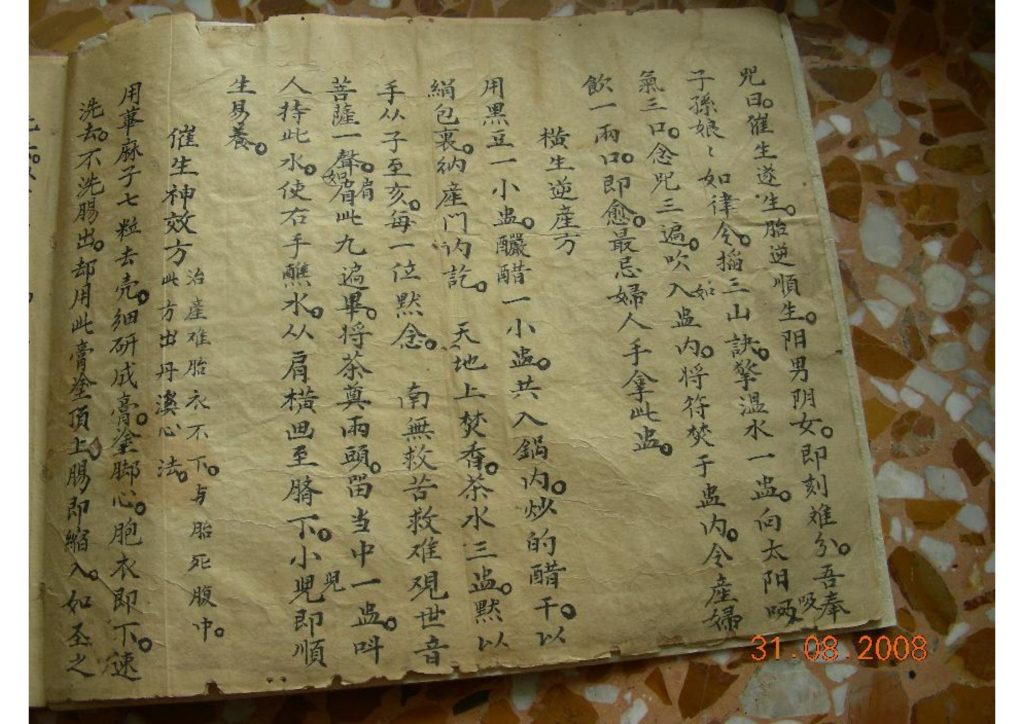 咒曰。催生遂生。胎逆順生。阳男阴女。即刻难分。吾奉
子孫娘〻如律令。搯三山訣。擎溫水一盅。向太阳吸
氣三口。念咒三遍。吹入盅内。将符焚于盅内。令産婦
飲一兩口。即愈。最忌婦人手拿此盅。
橫生逆産方
用黑豆一小盅。釅醋一小盅。共入鍋内。炒的醋干。以
絹包裹。納産門内訖。天地上焚香。茶水三盅。默以
手从子至亥。每一位默念。南無救苦救难观世音
菩薩一聲。眉此九遍畢。将茶奠兩頭。留当中一盅。叫
人持此水。使右手醮水。从肩橫画至臍下。小児即順
生易養。
催生神效方
治産难胎衣不下。与胎死腹中。
此方出丹溪心法。
用萆麻子七粒去壳。细研成膏。塗脚心。胞衣即下。速
洗去。不洗腸出。却用此膏塗頂上。腸即縮入。如圣之
31.08.2008